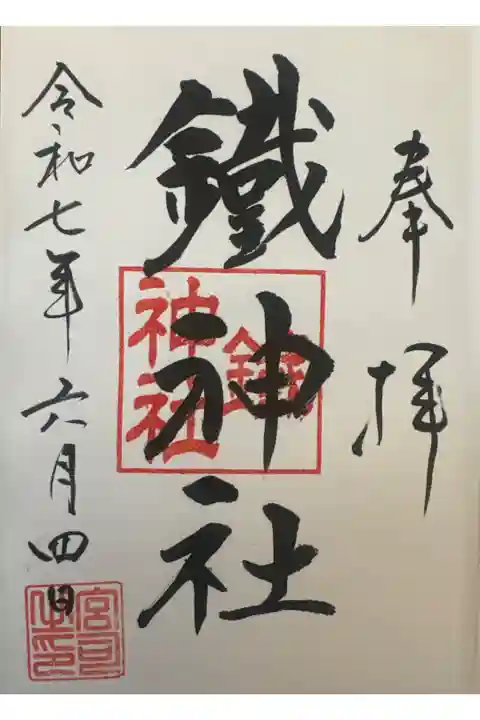 奉拝
鐵神社
令和七年六月四日
神社
宮司
之印